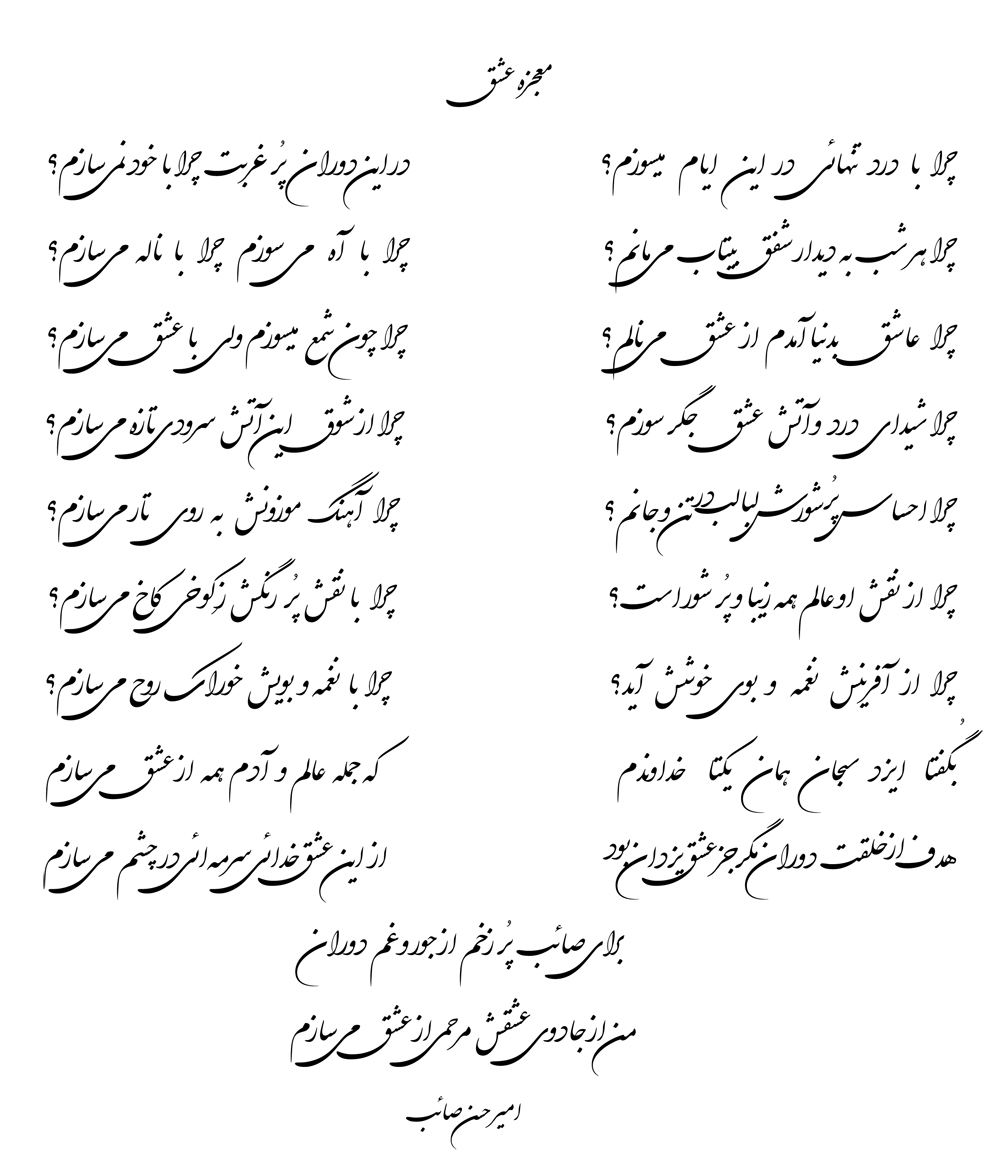 معجزه عشق
چرا با درد تنهائی در این ایام میسوزم؟ در این دوران پُر غربت چرا با خود نمی سازم؟
چرا هر شب به دیدار شفق بیتاب می مانم؟ چرا با آه می سوزم چرا با ناله می سازم؟
چرا عاشق بدنیا آمدم از عشق می نالم؟ چرا چون شمع میسوزم ولی با عشق می سازم؟
چرا شیدای درد و آتش عشق جگر سوزم؟ چرا از شوق این آتش سرودی تازه می سازم؟
چرا احساس پُر شورش لبالب در تن و جانم؟ چرا آهنگ موزونش به روی تار می سازم؟
چرا از نقش او عالم همه زیبا و پُر شور است؟ چرا با نقش پُر رنگش زِ کوخی کاخ می سازم؟
چرا از آفرینش نغمه و بوی خوشش آید؟ چرا با نغمه و بویش خوراک روح می سازم؟
بگُفتا ایزد سبحان همان یکتا خداوندم که جمله عالم و آدم همه از عشق می سازم
هدف از خلقت دوران مگر جز عشق یزدان بود از این عشق خدائی سرمه ائی در چشم می سازم
برای صائب پُر زخم از جور و غم دوران
من از جادوی عشقش مرحمی از عشق می سازم
امیر حسن صائب